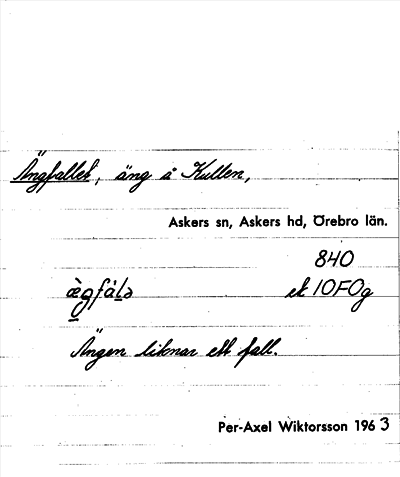 Ängfallet, äng å Kullen,
Askers sn, Askers hd, Örebro län.
840
æ̀g̱fàḻə ek 10F0g
Ängen liknar ett fall.
Per-Axel Wiktorsson 1963